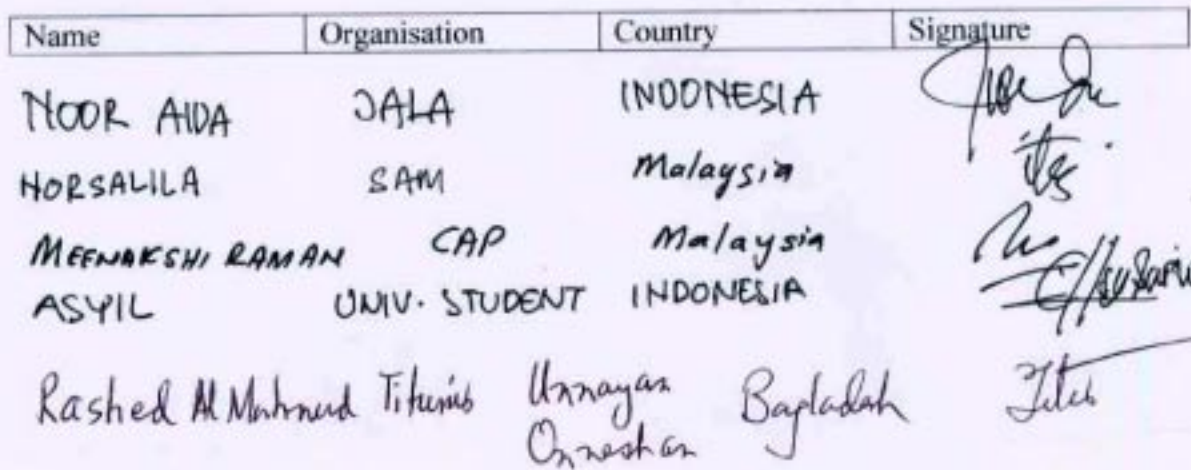 Name Organisation Country Signature
NOOR AIDA JALA INDONESIA
NORSALILA SAM Malaysia
MEENAKSHI RAMAN CAP Malaysia
ASYIL UNIV. STUDENT INDONESIA
Rashed Al Mahmud Titumir Unnayan Bagladah
Onneshan